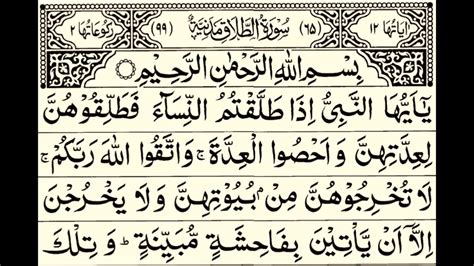 اٰيَاتُهَا ١٢ (٦٥) سُوْرَةُ الطَّلَاقِ مَدَنِيَّةٌ (٩٩) رُكُوْعَاتُهَا ٢
بِسْمِ اللهِ الرَّحْمٰنِ الرَّحِيْمِ
يٰۤاَيُّهَا النَّبِيُّ اِذَا طَلَّقْتُمُ النِّسَآءَ فَطَلِّقُوْهُنَّ
لِعِدَّتِهِنَّ وَ اَحْصُوا الْعِدَّةَ ۚ وَ اتَّقُوا اللهَ رَبَّكُمْ ۚ
لَا تُخْرِجُوْهُنَّ مِنْۢ بُيُوْتِهِنَّ وَ لَا يَخْرُجْنَ
اِلَّاۤ اَنْ يَّاْتِيْنَ بِفَاحِشَةٍ مُّبَيِّنَةٍ ؕ وَ تِلْكَ